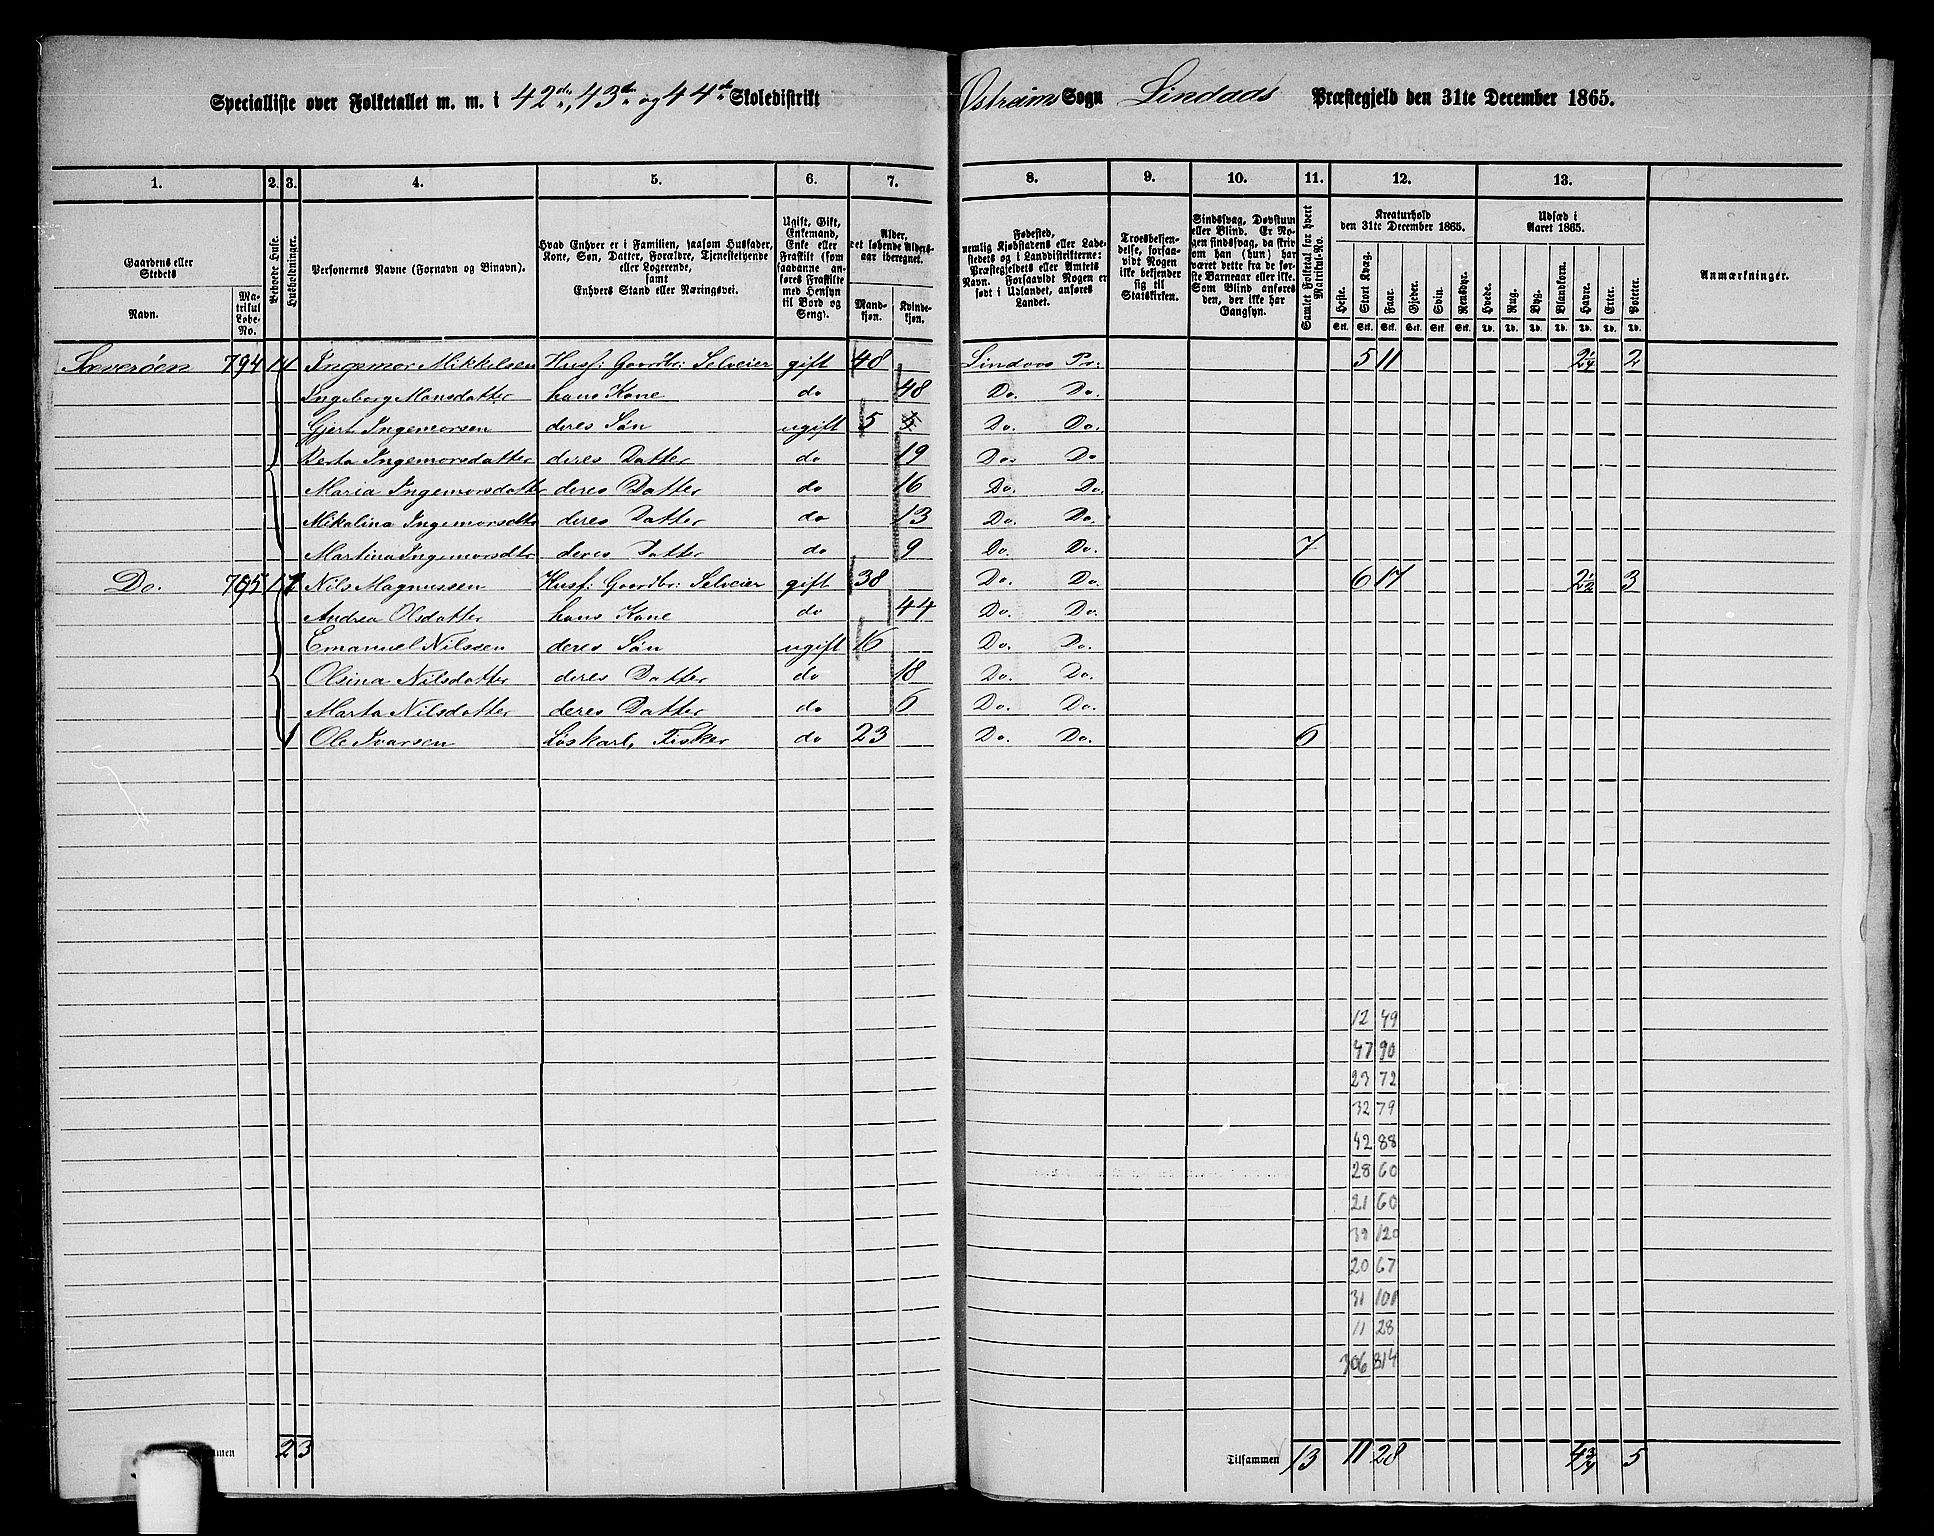 Specialliste over Folketallet m. m. i 42de, 43de og 44de Skoledistrikt Østreim Sogn Lindaas Præstegjeld den 31te December 1865.
1. 2. 3. 4. 5. 6. 7. 8. 9. 10. 11. 12. 13.
Gaardens eller Stedets
Navn.
Matrikul Løbe-No.
Bebyede Huse.
Husholdninger.
Personernes Navne (Fornavn og Binavn).
Hvad Enhver er i Familien, saasom Husfader, Kone, Søn, Datter, Forældre, Tjenestetyende eller Logerende, samt Enhvers Stand eller Næringsvei.
Ugift, Gift, Enkemand, Enke eller Fraskilt (som saadanne anføres Fraskilte med Hensyn til Bord og Seng).
Alder, det løbende Aldersaar iberegnet.
Mandkjøn.
Kvindekjøn.
Fødested, nemlig Kjøbstadens eller Ladestedets og i Landdistrikterne: Præstegjeldets eller Amtets Navn. Forsaavidt Nogen er født i Udlandet, anføres Landet.
Troesbekjendelse, forsaavidt Nogen ikke bekjender sig til Statskirken.
Sindssvag, Døvstum eller Blind. Er Nogen sindssvag, da skriv om han (hun) har været dette fra de første Barneaar eller ikke. Som Blind anføres den, der ikke har Gangsyn.
Samlet Folketal for hvert Matrikul-No.
Kreaturhold den 31te December 1865.
Heste. Stort Kvæg. Faar. Gjeder. Svin. Rensdyr.
Stk. Stk. Stk. Stk. Stk. Stk.
Udsæd i Aaret 1865.
Hvede. Rug. Byg. Blandkorn. Havre. Erter. Poteter.
Td. Td. Td. Td. Td. Td. Td.
Anmærkninger.
Sæverøen 794 1 1 Ingemor Mikkelsen Husf: Gaardbr: Selveier gift 48 Lindaas Pr: 5 11 2¼ 2
Ingeborg Monsdatter hans Kone do 48 Do. Do.
Gjert Ingemorsen deres Søn ugift 5 Do. Do.
Berta Ingemorsdatter deres Datter do 19 Do. Do
Maria Ingemorsdatter deres Datter do 16 Do. Do.
Mikalina Ingemorsdtr deres Datter do 13 Do. Do.
Martina Ingemorsdtr deres Datter do 9 Do. Do. 7
Do. 795 1 1 Nils Magnussen Husf: Gaardbr: Selveier gift 38 Do. Do. 6 17 2½ 3
Andrea Olsdatter hans Kone do 44 Do. Do.
Emanuel Nilssen deres Søn ugift 16 Do. Do.
Olsina Nilsdatter deres Datter do 18 Do. Do.
Marta Nilsdatter deres Datter do 6 Do. Do.
1 Ole Ivarsen Løskarl, Fisker do 23 Do. Do. 6
12 49
47 90
23 72
32 79
42 88
28 60
21 60
39 120
20 67
31 101
11 28
306 814
2 3
Tilsammen 13 11 28 4¾ 5